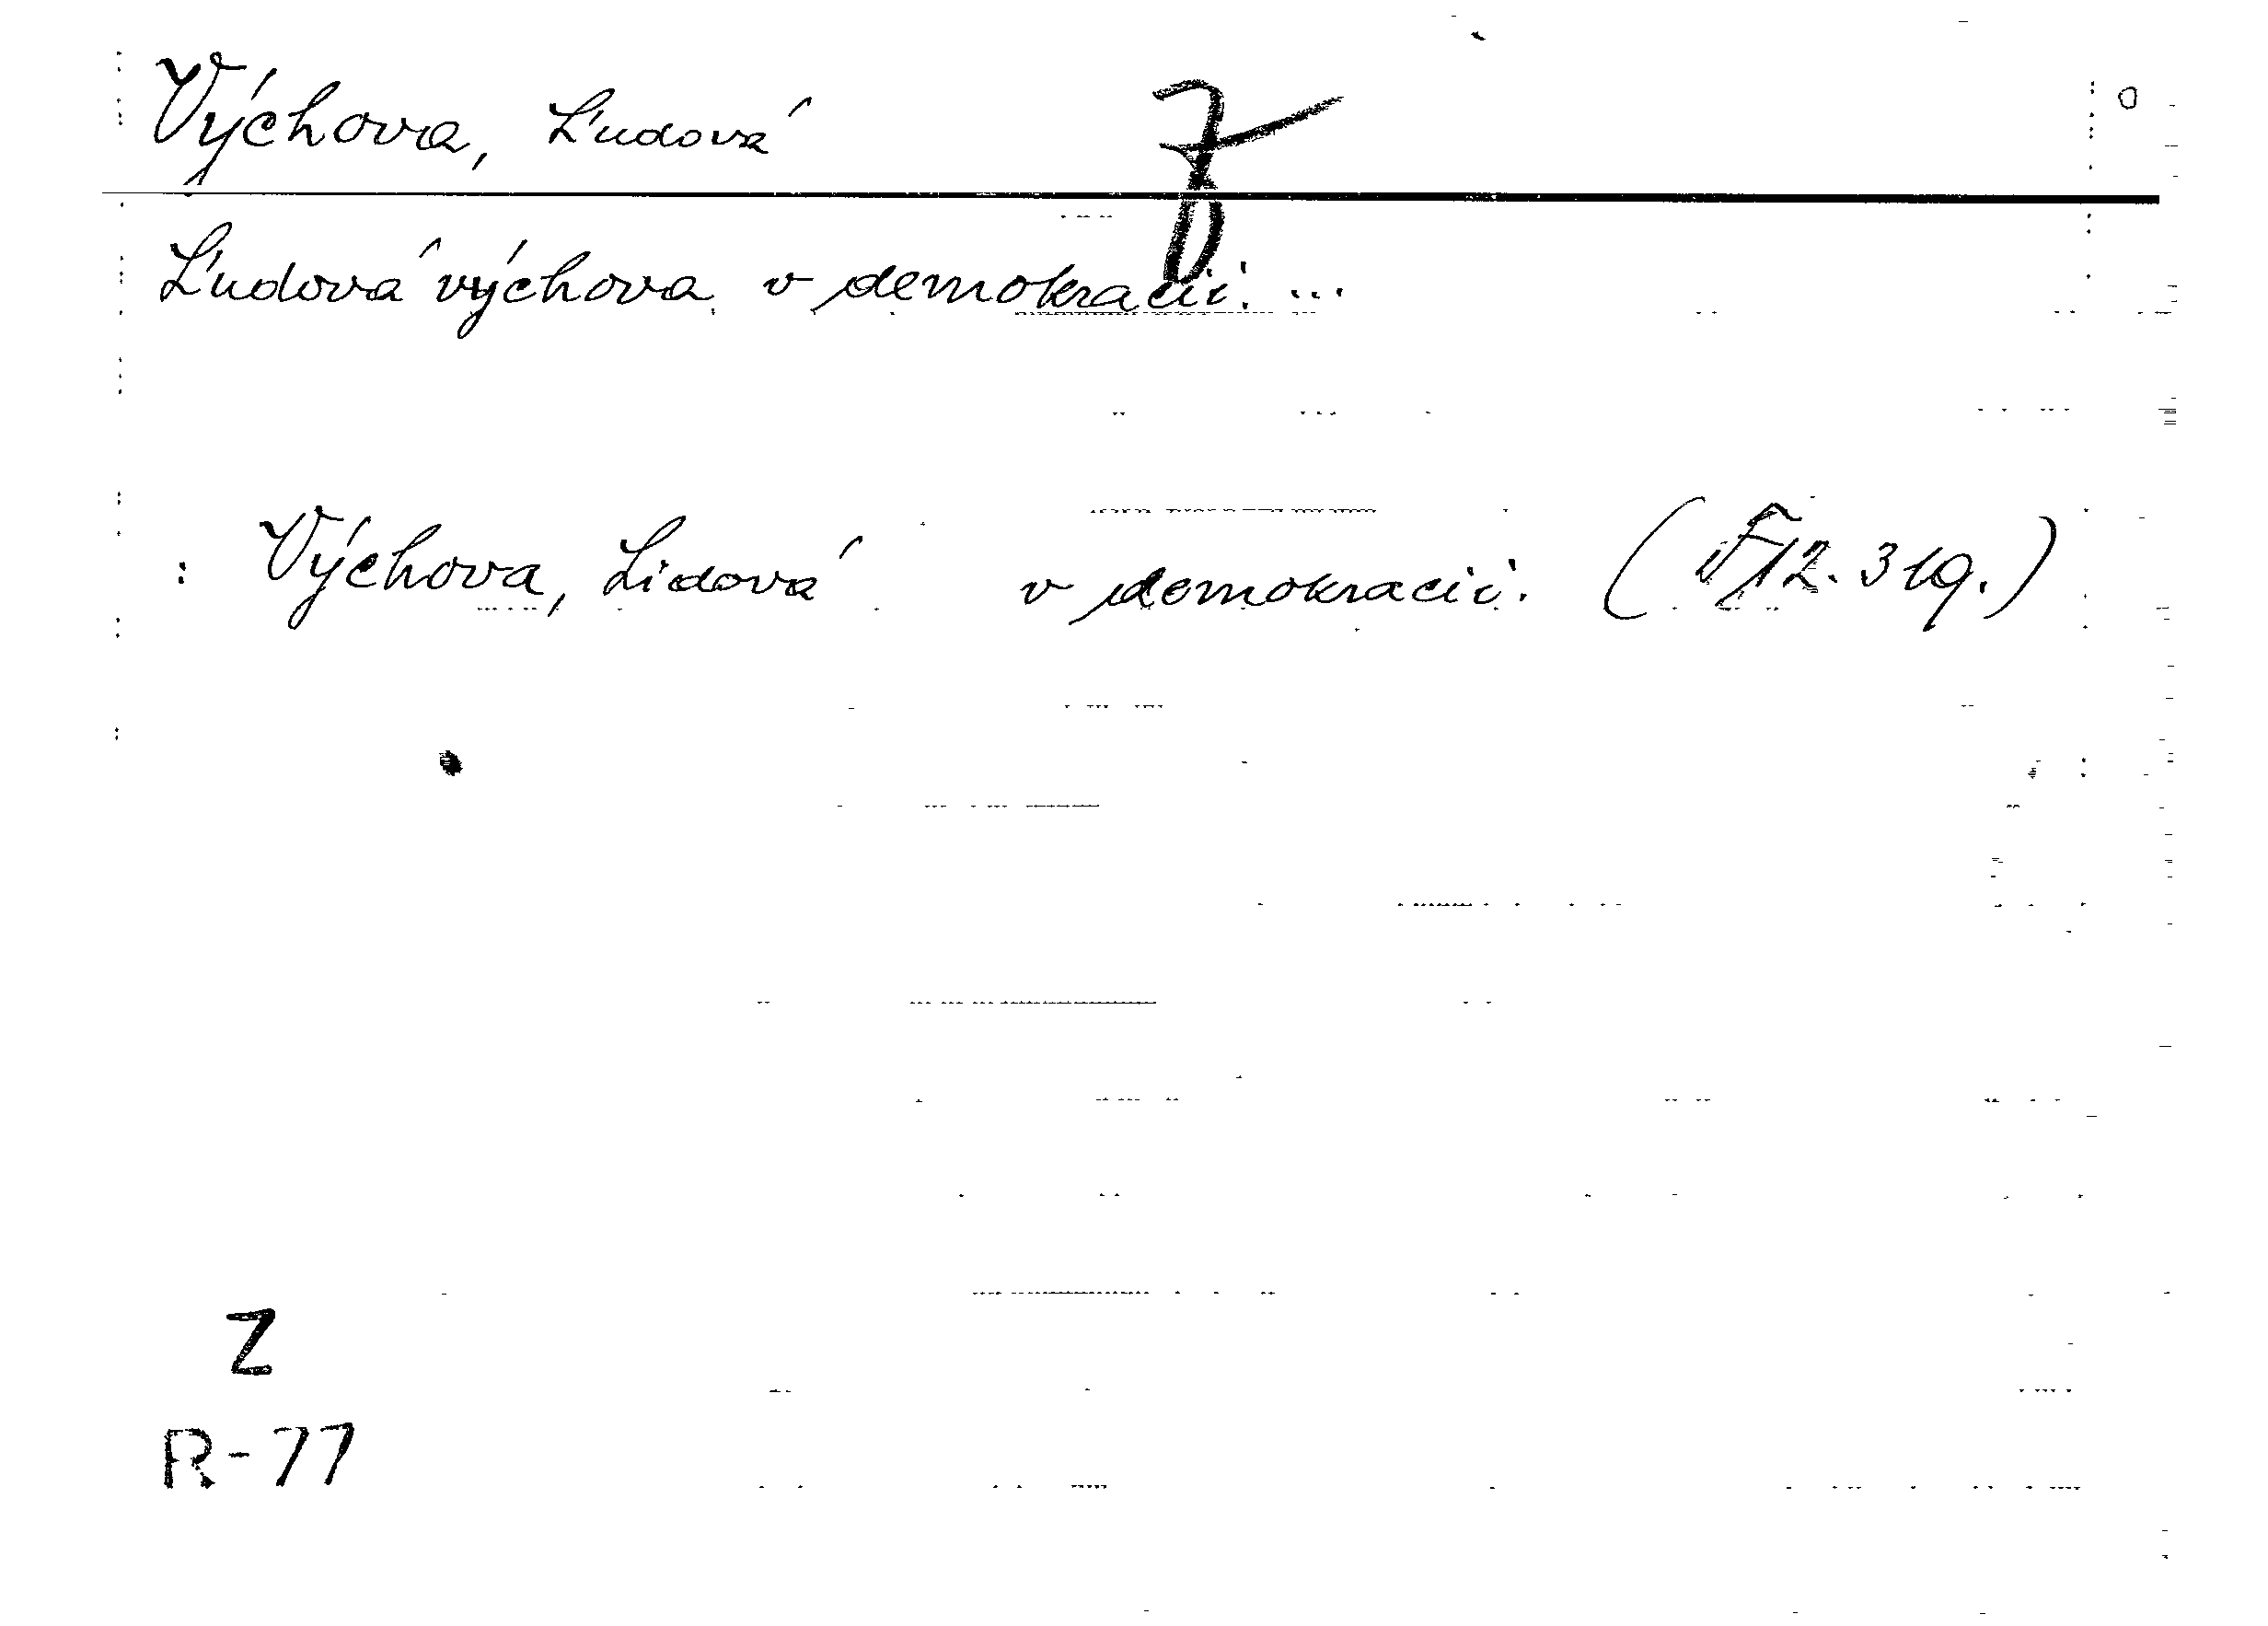 Výchova, Ľudová
Ľudová výchova v demokracii. ...
: Výchova, Lidová v demokracii. (F12.319.)
Z
R-77